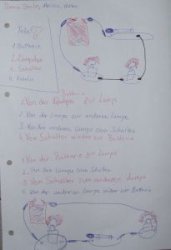 Teile
1. Batterie
2. Lampen
3. Schalter
4. Kabeln
Batterie
1. Von der Lampe zur Lampe
2. Von der Lampe zur anderen Lampe
3. Von der anderen Lampe zum Schalter
4. Vom Schalter wieder zur Batterie
1. Von der Batterie zur Lampe
2. Von der Lampe zum Schalter
3. Vom Schalter zur anderen Lampe
4. Von der anderen Lampe wieder zur Batterie